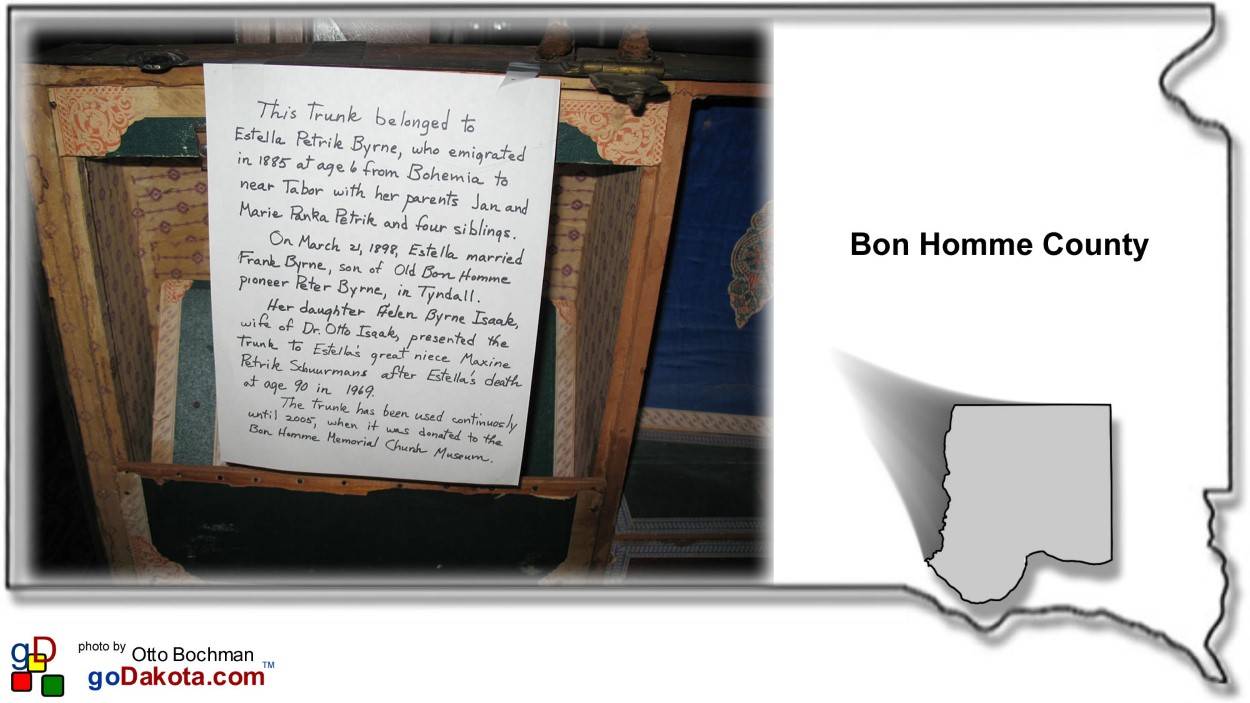 This Trunk belonged to
Estella Petrik Byrne, who emigrated
in 1885 at age 6 from Bohemia to
near Tabor with her parents Jan and
Marie Panka Petrik and four siblings.
On March 21, 1898, Estella married
Frank Byrne, son of Old Bon Homme
pioneer Peter Byrne, in Tyndall.
Her daughter Helen Byrne Isaak,
wife of Dr. Otto Isaak, presented the
Trunk to Estella's great niece Maxine
Petrik Schuurmans after Estella's death
at age 90 in 1969.
The trunk has been used continuosly
until 2005, when it was donated to the
Bon Homme Memorial Church Museum.
Bon Homme County
gD
photo by Otto Bochman
goDakota.com TM